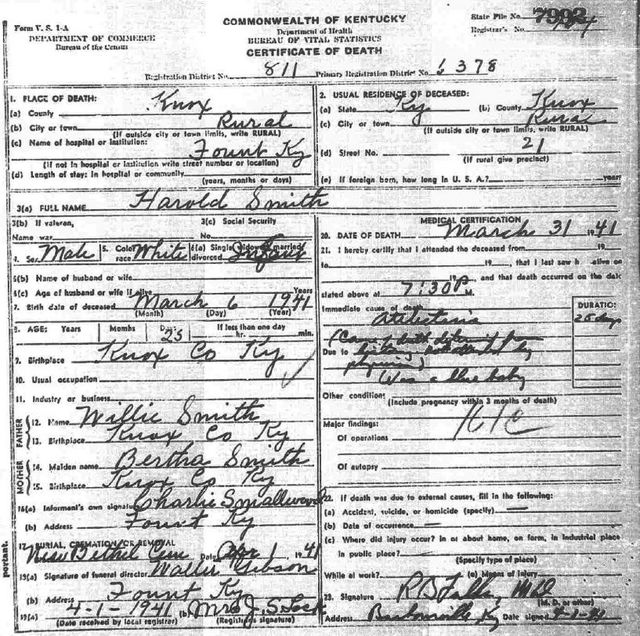 Form V. S. 1-A
DEPARTMENT OF COMMERCE
Bureau of the Census
COMMONWEALTH OF KENTUCKY
Department of Health
BUREAU OF VITAL STATISTICS
CERTIFICATE OF DEATH
State File No. 7993
Registrar's No.
Registration District No. 811 Primary Registration District No. 6378
1. PLACE OF DEATH:
(a) County Knox
(b) City or town Rural
(If outside city or town limits, write RURAL)
(c) Name of hospital or institution:
Fount Ky
(If not in hospital or institution write street number or location)
(d) Length of stay: In hospital or community
(years, months or days)
2. USUAL RESIDENCE OF DECEASED:
(a) State Ky (b) County Knox
(c) City or town Rural
(If outside city or town limits, write RURAL)
(d) Street No. 21
(If rural give precinct)
(e) If foreign born, how long in U. S. A.? years
3(a) FULL NAME Harold Smith
3(b) If veteran, Name war
3(c) Social Security No.
4. Sex Male 5. Color race White 6(a) Single, widowed, married divorced Infant
6(b) Name of husband or wife
6(c) Age of husband or wife if alive Years
7. Birth date of deceased March 6 1941
(Month) (Day) (Year)
8. AGE: Years Months Days If less than one day
25 hr. min.
9. Birthplace Knox Co Ky
10. Usual occupation
11. Industry or business
FATHER
12. Name Willie Smith
13. Birthplace Knox Co Ky
MOTHER
14. Maiden name Bertha Smith
15. Birthplace Knox Co Ky
16(a) Informant's own signature Charlie Smallwood
(b) Address Fount Ky
17 BURIAL, CREMATION OR REMOVAL
New Bethel Cem Date Apr 1 1941
18(a) Signature of funeral director Walter Gibson
(b) Address Fount Ky
19(a) 4-1-1941 (b) Mrs J. S. Lock
(Date received by local registrar) (Registrar's signature)
MEDICAL CERTIFICATION
20. DATE OF DEATH March 31 1941
21. I hereby certify that I attended the deceased from 19
to 19 , that I last saw h alive on
19 , and that death occurred on the date
stated above at 7:30 P.M.
Immediate cause of death DURATION:
Atelectasis 25 days
Due to
Was a blue baby
Other condition:
(Include pregnancy within 3 months of death)
Major findings:
Of operations
Of autopsy
22. If death was due to external causes, fill in the following:
(a) Accident, suicide, or homicide (specify)
(b) Date of occurrence
(c) Where did injury occur? in or about home, on farm, in industrial place
in public place?
(Specify type of place)
While at work? (e) Means of Injury
23. Signature MD
(M. D. or other)
Address Barbourville, Ky Date signed
portant.